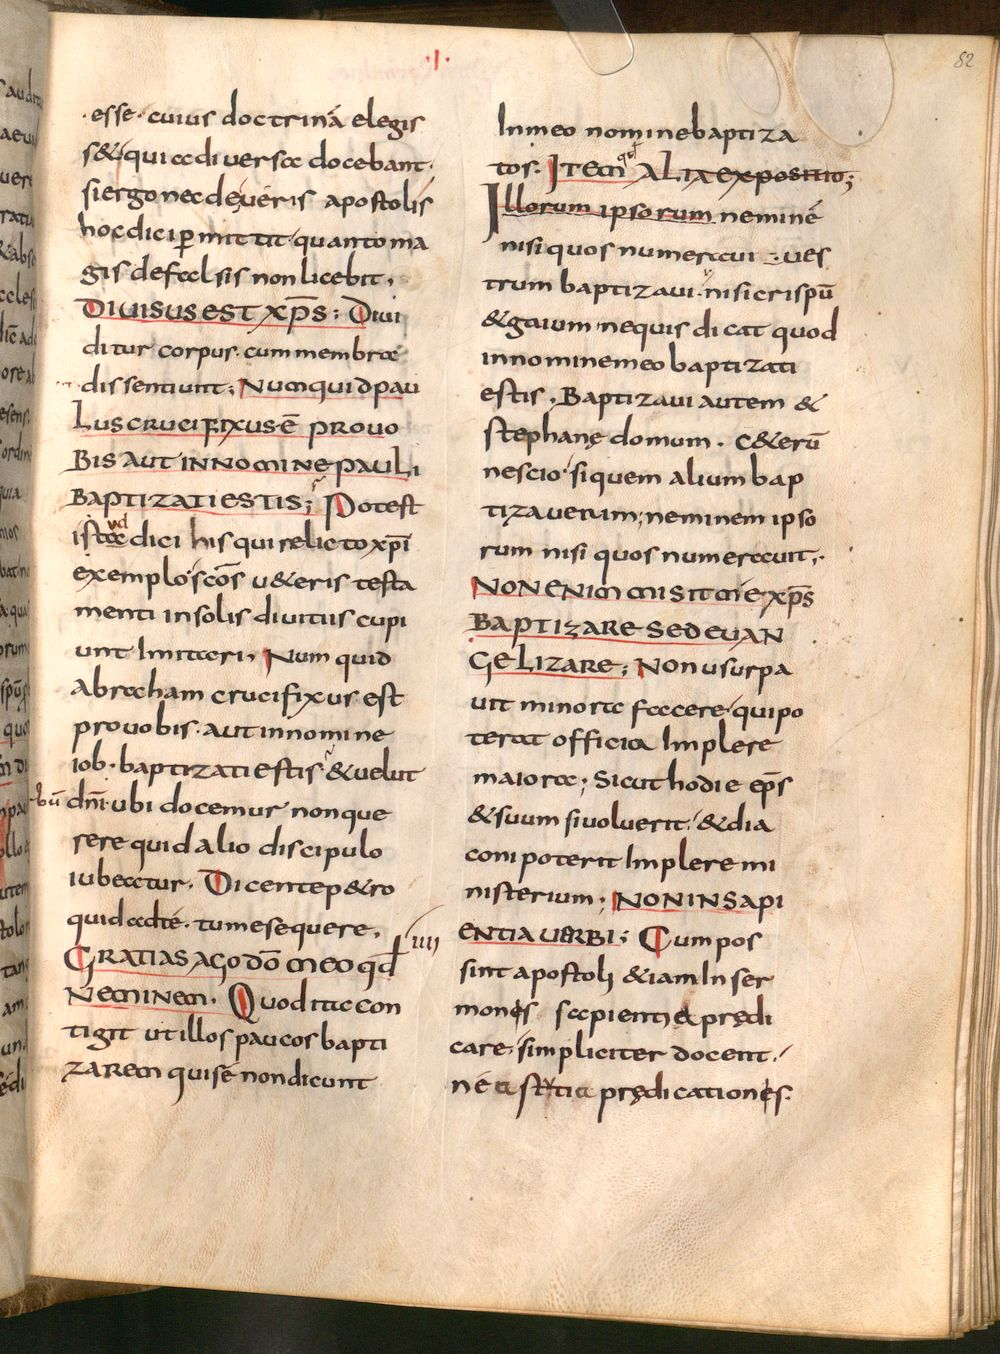 82
·I·
esse· cuius doctrinā elegis
s& qui addiversa docebant·
si ergo nec de veris apostolis
hoc dici p̲mittit· quanto ma
gis de falsis non licebit·
DIVISUS EST XP̄S; Divi
ditur corpus· cum membra
dissentiunt; NUMQUID PAU
LUS CRUCIFIXUS Ē PRO VO
BIS AUT IN NOMINE PAULI
BAPTIZATI ESTIS; Potest
ista dici his qui relicto xp̄i
exemplo· scōs v&eris testa
menti in solis divitiis cupi
unt Imitari· Num quid
abraham crucifixus est
pro vobis· aut in nomine
iob· baptizati estis· & velut
dn̄i· ubi docemur non que
rere quid alio discipulo
iubeatur· Dicente p&ro
quid ad te· tu me sequere·
GRATIAS AGO DŌ MEO QD̄ IIII
NEMINEM· Quod ita con
tigit ut illos paucos bapti
zarem qui se non dicunt
In meo nomine baptiza
tos· ITEM ALIA EXPOSITIO;
Illorum ipsorum neminē
nisi quos numeravi ves
trum baptizavi· nisi crispū
& gaium· ne quis dicat quod
in nomine meo baptizati
estis· Baptizavi autem &
stephanę domum· c&erū
nescio· si quem alium bap
tizaverim; neminem ipso
rum nisi quos numeravit·
NON ENIM MISIT ME XP̄S
BAPTIZARE SED EVAN
GELIZARE; Non usurpa
vit minora facere· qui po
terat officia Implere
maiora; Sicut hodie ep̄s
& suum si voluerit· & dia
coni poterit Implere mi
nisterium; NON IN SAPI
ENTIA VERBI; Cum pos
sint apostoli & iam In ser
monis sapienti prędi
care· simpliciter docent·
ne prędicationis·